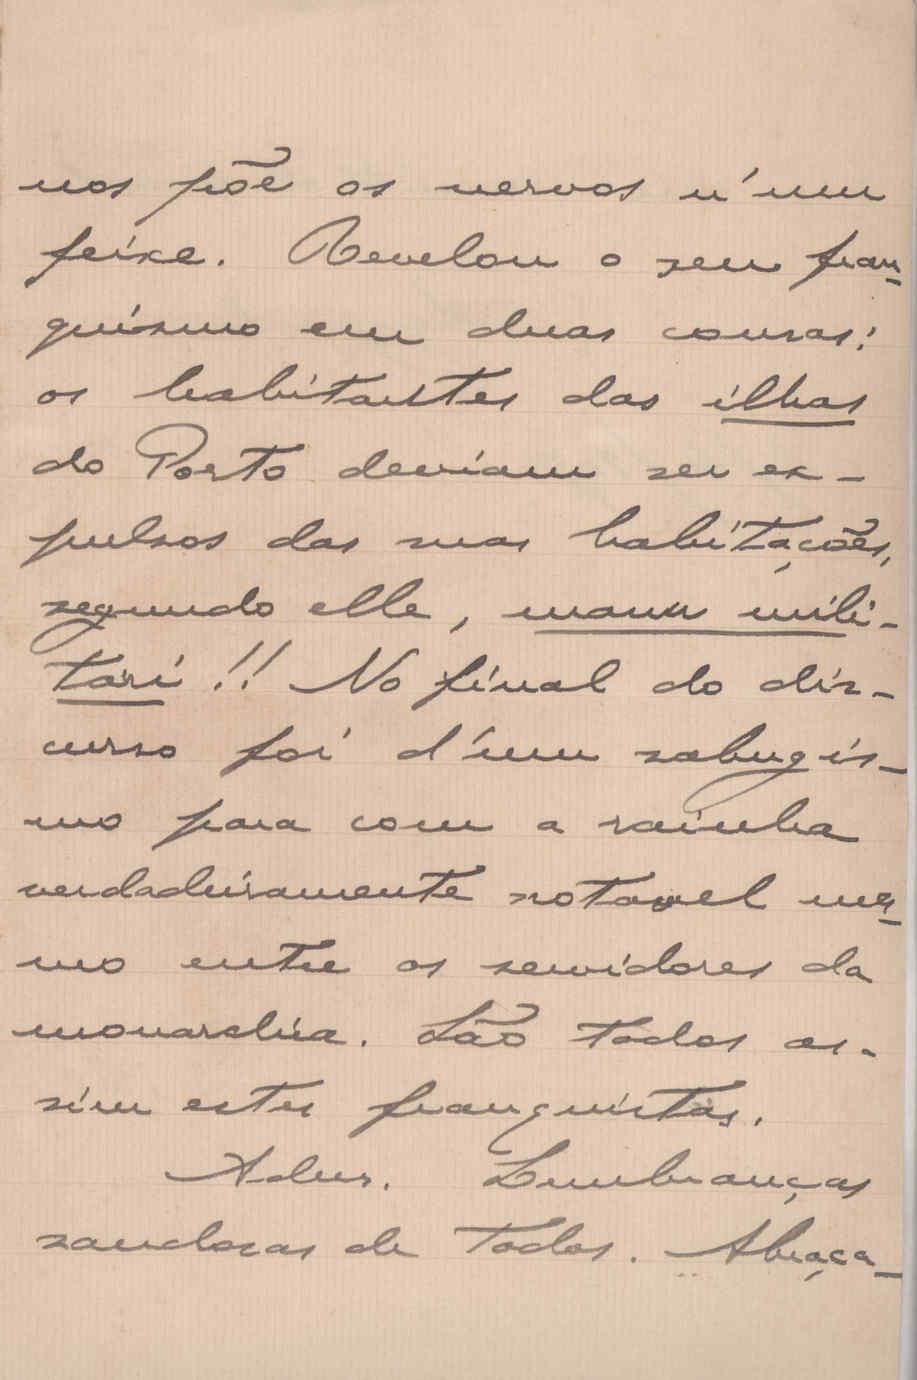 nos põe os nervos n'um
feixe. Revelou o seu fran-
quismo em duas cousas:
os habitantes das ilhas
do Porto deviam ser ex-
pulsos das suas habitações,
segundo elle, manu mili-
tari!! No final do dis-
curso foi d'um sabugis-
mo para com a rainha
verdadeiramente notavel mes-
mo entre os servidores da
monarchia. São todos as-
sim estes franquistas.
Adeus. Lembranças
saudosas de todos. Abraça-